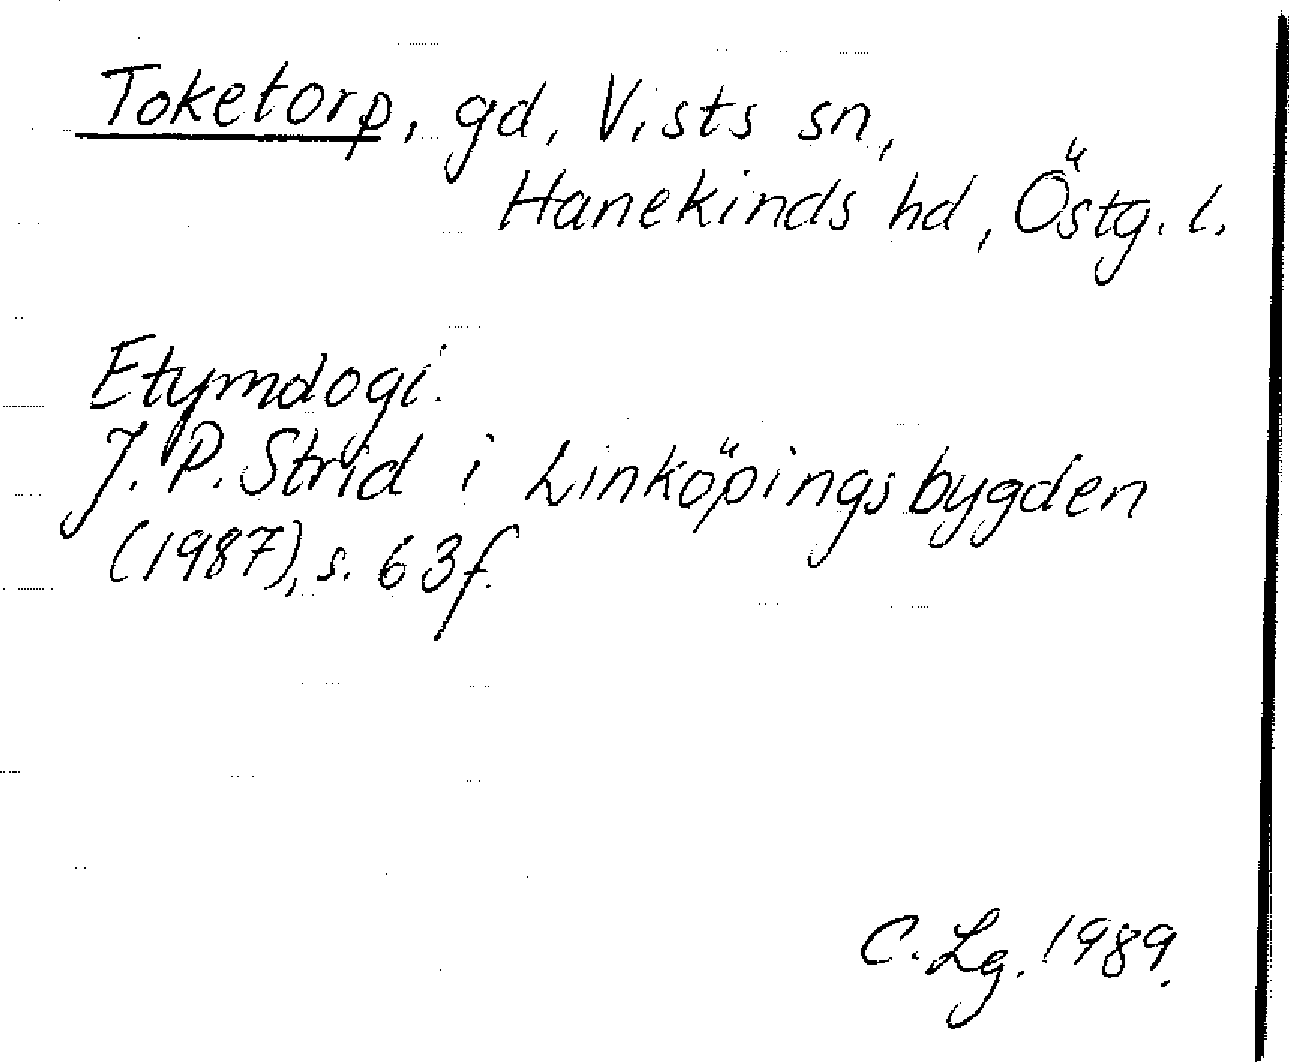 Toketorp, gd, Vists sn,
Hanekinds hd, Östg. l.
Etymologi.
J. P. Strid i Linköpingsbygden
(1987), s. 63f.
C. Lg. 1989.